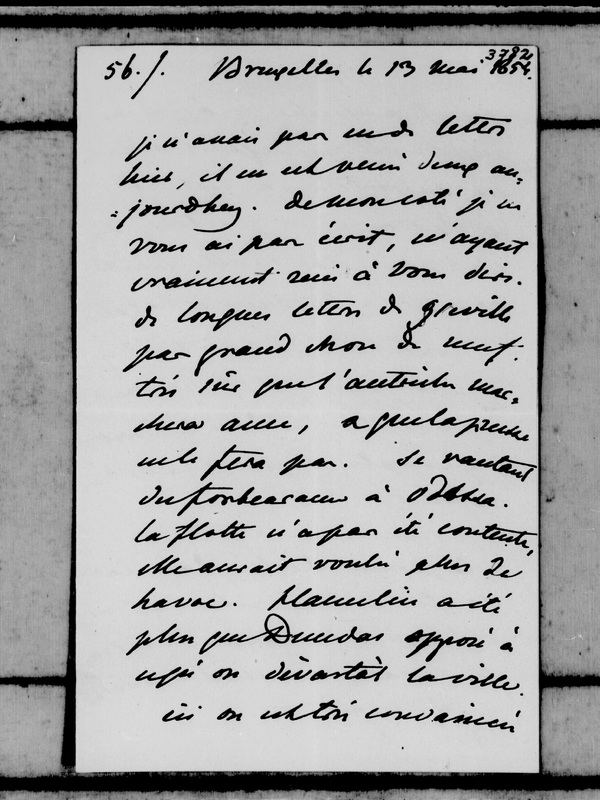 56. /. Bruxelles le 13 mai 1854.
3792
je n'avais pas eu de lettre
hier, il en est venu deux au-
=jourdhuy. de mon coté je ne
vous ai pas écrit, n'ayant
vraiment rien à vous dire.
de longues lettres de Greville
pas grand chose de neuf.
très sûr que l'autriche mar-
chera avec, que la prusse
ne le fera pas. se vantant
du forbearance à Odessa.
la flotte n'a pas été contente,
elle aurait voulu plus de
havoc. Hamelin a été
plus que Dundas opposé à
ce qu'on dévastât la ville.
ici on est très convaincu